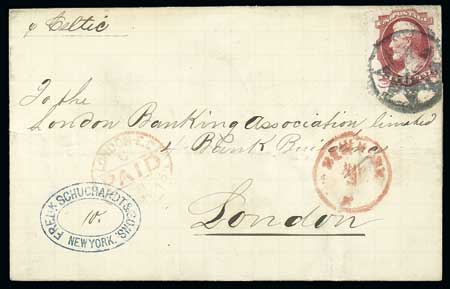 p Celtic
To the
London Banking Association limited
Bank Buildings
London
LONDON E.C.
PAID
FREDK SCHUCHARDT & SONS.
10.
NEW YORK.
NEW YORK